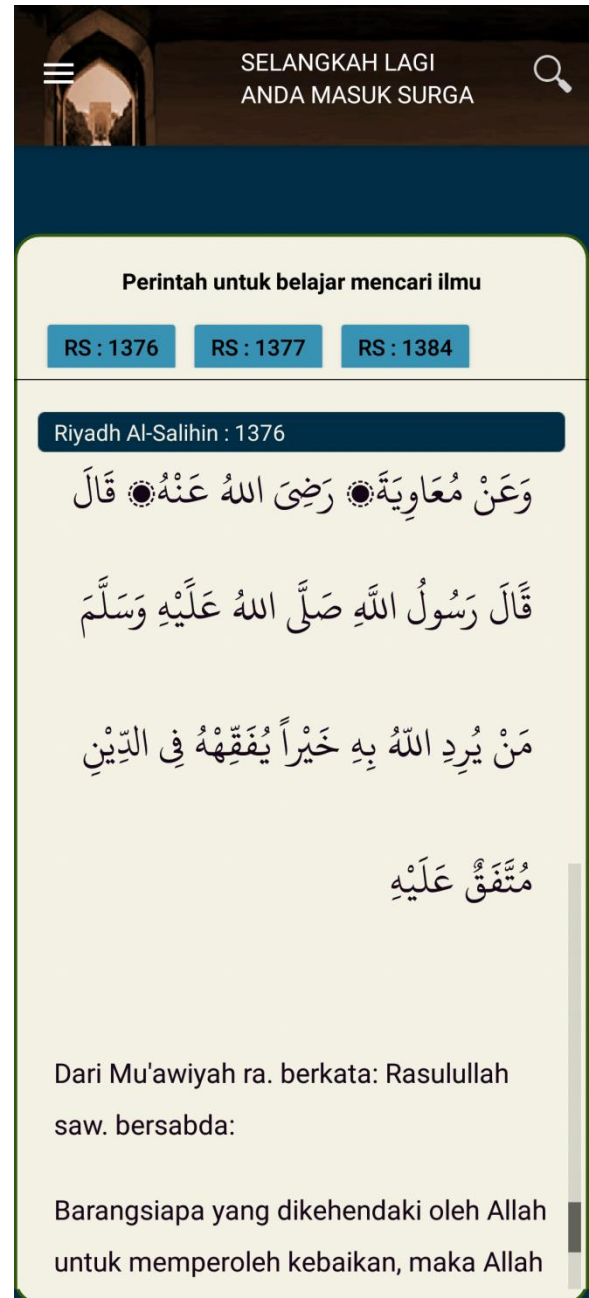 SELANGKAH LAGI
ANDA MASUK SURGA
Perintah untuk belajar mencari ilmu
RS : 1376
RS : 1377
RS : 1384
Riyadh Al-Salihin : 1376
وَعَنْ مُعَاوِيَةَ۞ رَضِىَ اللهُ عَنْهُ۞ قَالَ
قَّالَ رَسُولُ اللَّهِ صَلَّى اللهُ عَلَّيْهِ وَسَلَّمَ
مَنْ يُرِدِ اللّهُ بِهِ خَيْراً يُفَقِّهْهُ فِى الدِّيْنِ
مُتَّفَقٌ عَلَيْهِ
Dari Mu'awiyah ra. berkata: Rasulullah
saw. bersabda:
Barangsiapa yang dikehendaki oleh Allah
untuk memperoleh kebaikan, maka Allah